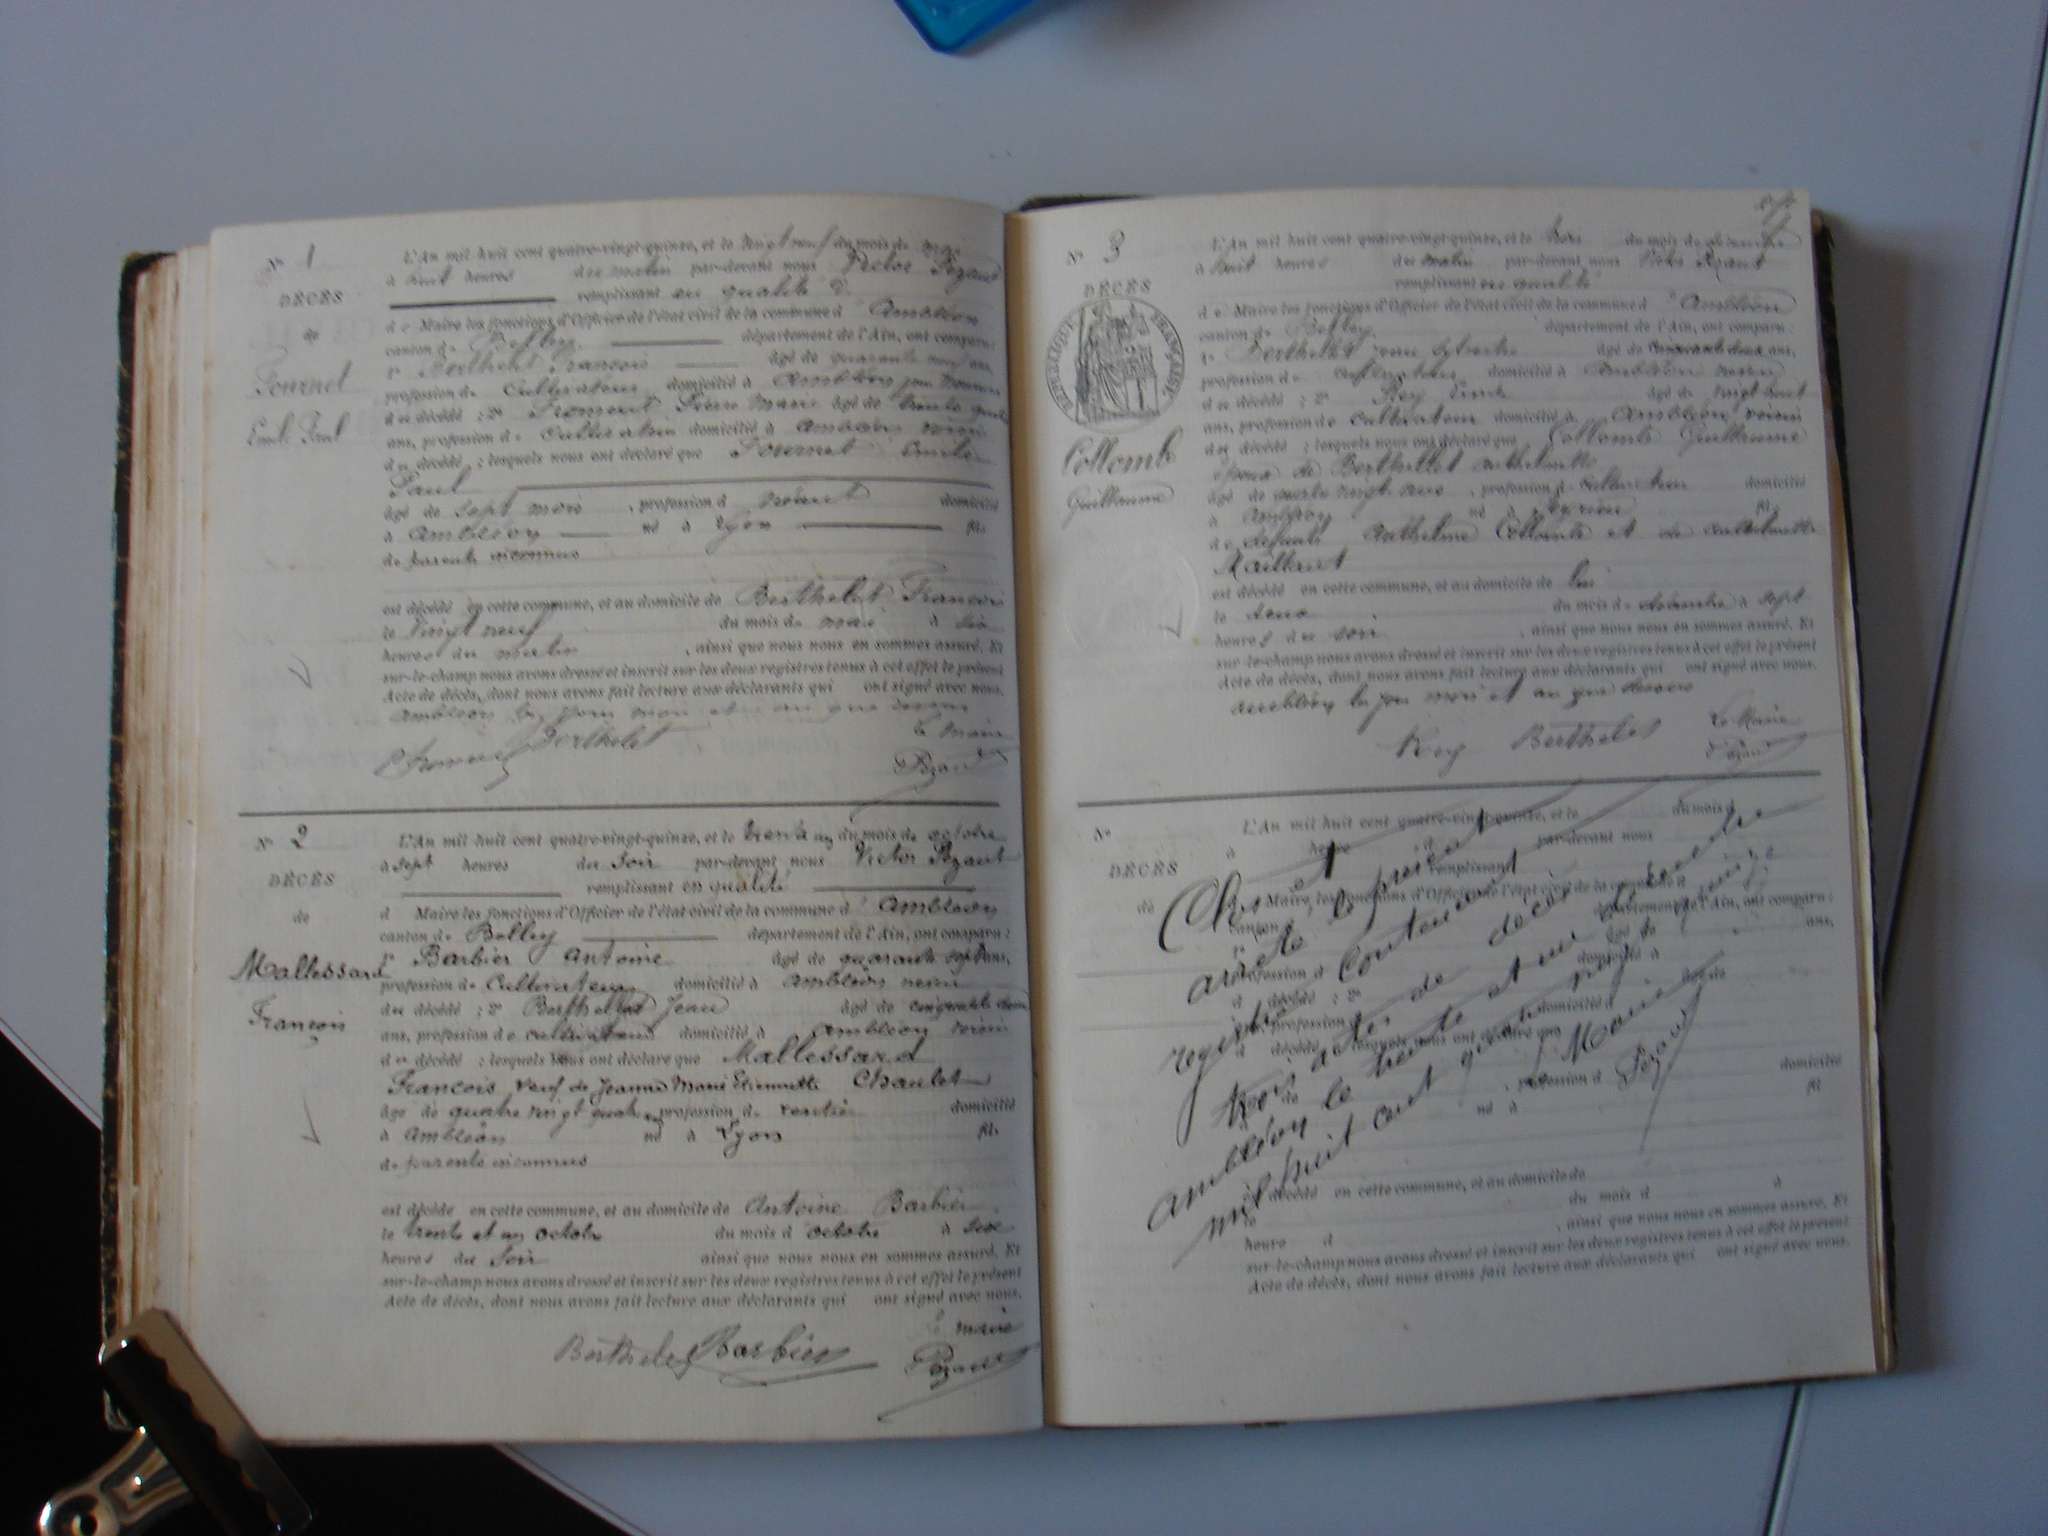 N° 1
DÉCÈS
de
Fournet
Emile Paul
L'An mil huit cent quatre-vingt-quinze, et le vingt neuf du mois de mai
à huit heures du matin par-devant nous Victor Pezant
remplissant en qualité d
de Maire les fonctions d'Officier de l'état civil de la commune d' Ambléon
canton de Belley département de l'Ain, ont comparu:
1° Berthelet François âgé de quarante neuf ans,
profession de Cultivateur domicilié à Ambléon
du décédé ; 2° Froment Pierre Marie âgé de trente
ans, profession de Cultivateur domicilié à Ambléon voisin
du décédé ; lesquels nous ont déclaré que Fournet Emile
Paul
âgé de sept mois, profession d néant domicilié
à Ambléon né à Lyon fils
de parents inconnus
est décédé en cette commune, et au domicile de Berthelet François
le vingt neuf du mois de mai à six
heures du matin, ainsi que nous nous en sommes assuré. Et
sur-le-champ nous avons dressé et inscrit sur les deux registres tenus à cet effet le présent
Acte de décès, dont nous avons fait lecture aux déclarants qui ont signé avec nous.
Ambléon les jour mois et an que dessus
Berthelet le maire
Pezant
N° 2
DÉCÈS
de
Mallessard
François
L'An mil huit cent quatre-vingt-quinze, et le trente un du mois de octobre
à sept heures du soir par-devant nous Victor Pezant
remplissant en qualité
d Maire les fonctions d'Officier de l'état civil de la commune d' Ambléon
canton de Belley département de l'Ain, ont comparu:
1° Barbier Antoine âgé de quarante sept ans,
profession de Cultivateur domicilié à Ambléon voisin
du décédé ; 2° Berthelet Jean âgé de cinquante deux
ans, profession de cultivateur domicilié à Ambléon voisin
du décédé ; lesquels nous ont déclaré que Mallessard
François veuf de Jeanne Marie Etiennette Chaulet
âgé de quatre vingt quatre ans, profession de rentier domicilié
à Ambléon né à Lyon fils
de parents inconnus
est décédé en cette commune, et au domicile de Antoine Barbier
le trente et un octobre du mois d octobre à six
heures du soir ainsi que nous nous en sommes assuré. Et
sur-le-champ nous avons dressé et inscrit sur les deux registres tenus à cet effet le présent
Acte de décès, dont nous avons fait lecture aux déclarants qui ont signé avec nous.
le maire
Berthelet Barbier Pezant
N° 3
DÉCÈS
RÉPUBLIQUE FRANÇAISE
Collomb
Guillaume
L'An mil huit cent quatre-vingt-quinze, et le trois du mois de décembre
à huit heures du matin par-devant nous Victor Pezant
remplissant en qualité
de Maire les fonctions d'Officier de l'état civil de la commune d' Ambléon
canton de Belley département de l'Ain, ont comparu:
1° Berthelet Jean Sylvestre âgé de cinquante deux ans,
profession de cultivateur domicilié à Ambléon voisin
du décédé ; 2° Rey âgé de vingt huit
ans, profession de cultivateur domicilié à Ambléon voisin
du décédé ; lesquels nous ont déclaré que Collomb Guillaume
époux de Berthellet Anthelmette
âgé de quatre vingt, profession d cultivateur domicilié
à Ambléon né à fils
de défunts Anthelme Collomb et de
Maillant
est décédé en cette commune, et au domicile de lui
le deux du mois de décembre à sept
heures du soir, ainsi que nous nous en sommes assuré. Et
sur-le-champ nous avons dressé et inscrit sur les deux registres tenus à cet effet le présent
Acte de décès, dont nous avons fait lecture aux déclarants qui ont signé avec nous.
Ambléon les jour mois et an que dessus
Rey Berthelet Le Maire
Pezant
N°
DÉCÈS
de
L'An mil huit cent quatre-vingt-quinze, et le du mois d
à heure d par-devant nous
remplissant
d Maire les fonctions d'Officier de l'état civil de la commune d
canton d département de l'Ain, ont comparu:
1° âgé de ans,
profession d domicilié à
d décédé ; 2° âgé de
ans, profession d domicilié à
d décédé ; lesquels nous ont déclaré que
âgé de , profession d domicilié
à né à fil
de
est décédé en cette commune, et au domicile de
le du mois d à
heure d , ainsi que nous nous en sommes assuré. Et
sur-le-champ nous avons dressé et inscrit sur les deux registres tenus à cet effet le présent
Acte de décès, dont nous avons fait lecture aux déclarants qui ont signé avec nous.
Clos et
arrêté le présent
registre contenant
trois actes de décès
Ambléon le trente et un décembre
mil huit cent quatre vingt quinze
Le Maire
Pezant